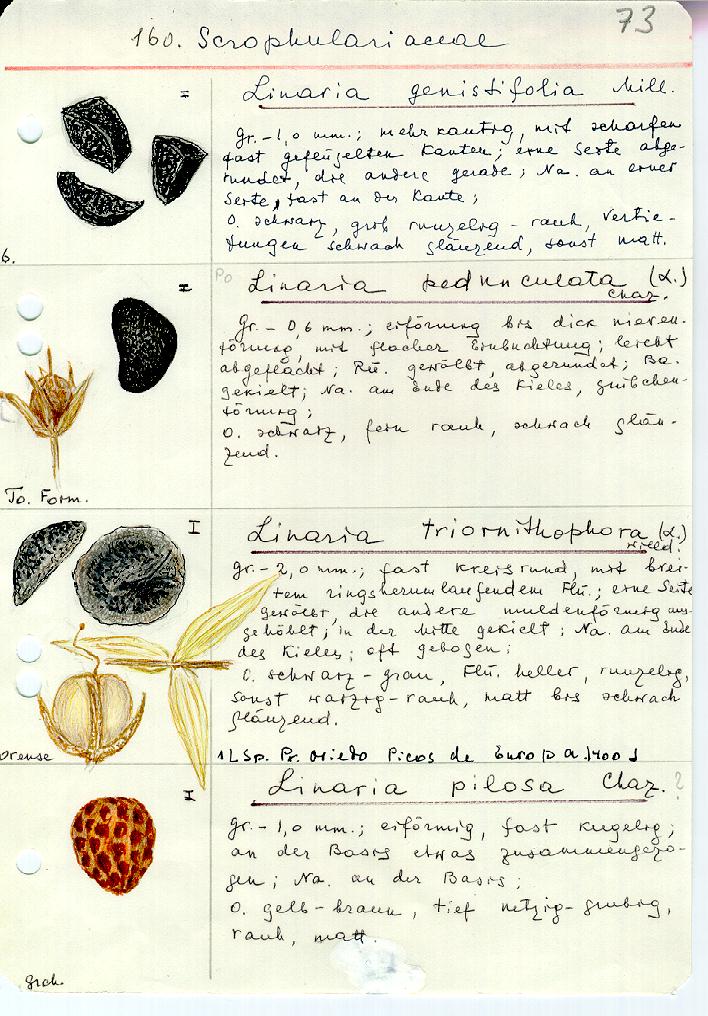 73
160. Scrophulariaceae
Linaria genistifolia Mill.
Gr. - 1,0 mm.; mehrkantig, mit scharfen
fast geflügelten Kanten; eine Seite abge-
rundet, die andere gerade; Na. an einer
Seite, fast an der Kante;
O. schwarz, grob runzelig - rauh, Vertie-
fungen schwach glänzend, sonst matt.
6.
Po
Linaria pedunculata (L.)
Chaz.
Gr. - 0,6 mm.; eiförmig bis dick nieren-
förmig, mit flacher Einbuchtung; leicht
abgeflacht; Rü. gewölbt, abgerundet; Ba.
gekielt; Na. am Ende des Kieles, grübchen-
förmig;
O. schwarz, fein rauh, schwach glän-
zend.
To. Form.
Linaria triornithophora (L.)
Willd.
Gr. - 2,0 mm.; fast kreisrund, mit brei-
tem ringsherumlaufendem Flü.; eine Seite
gewölbt, die andere muldenförmig aus-
gehöhlt; in der Mitte gekielt; Na. am Ende
des Kieles; oft gebogen;
O. schwarz - grau, Flü. heller, runzelig,
sonst warzig - rauh, matt bis schwach
glänzend.
orense
1 L Sp. Pr. Oviedo Picos de Europa 1400
Linaria pilosa Chaz. ?
Gr. - 1,0 mm.; eiförmig, fast kugelig;
an der Basis etwas zusammengezo-
gen; Na. an der Basis;
O. gelb - braun, tief netzig - grubig,
rauh, matt.
grch.